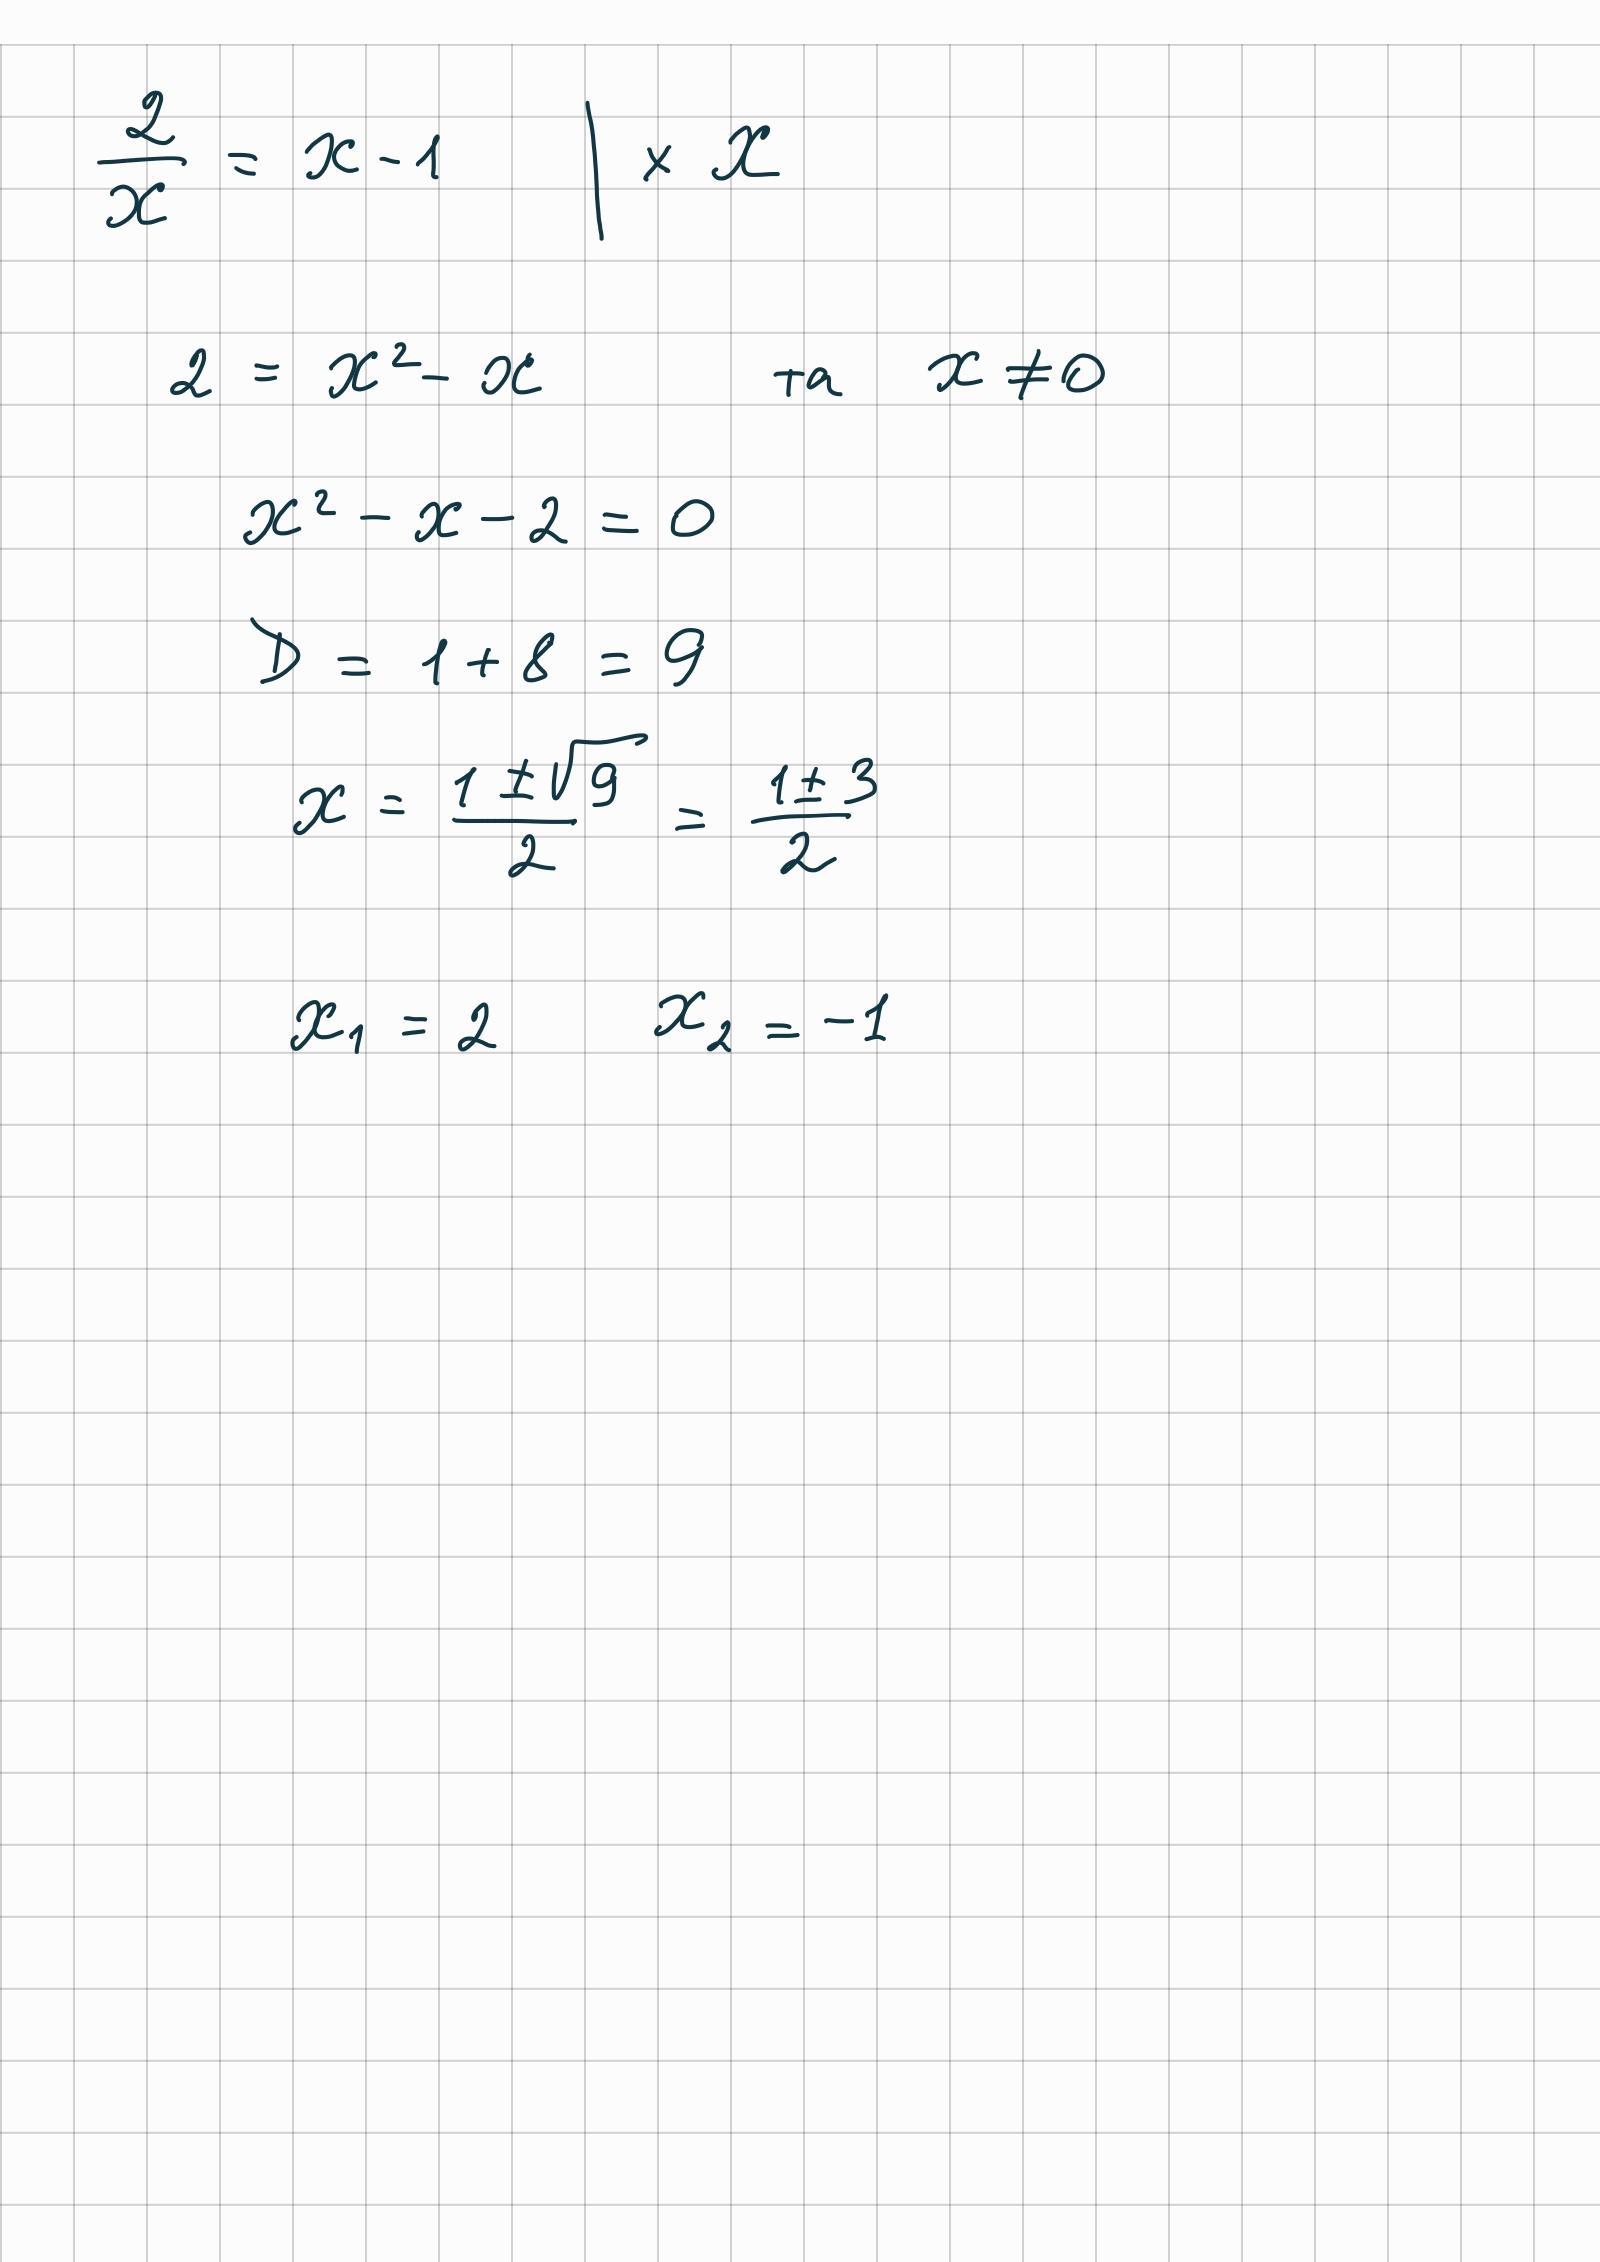 2/x = x - 1 | × x
2 = x² - x та x ≠ 0
x² - x - 2 = 0
D = 1 + 8 = 9
x = (1 ± √9)/2 = (1 ± 3)/2
x₁ = 2 x₂ = -1